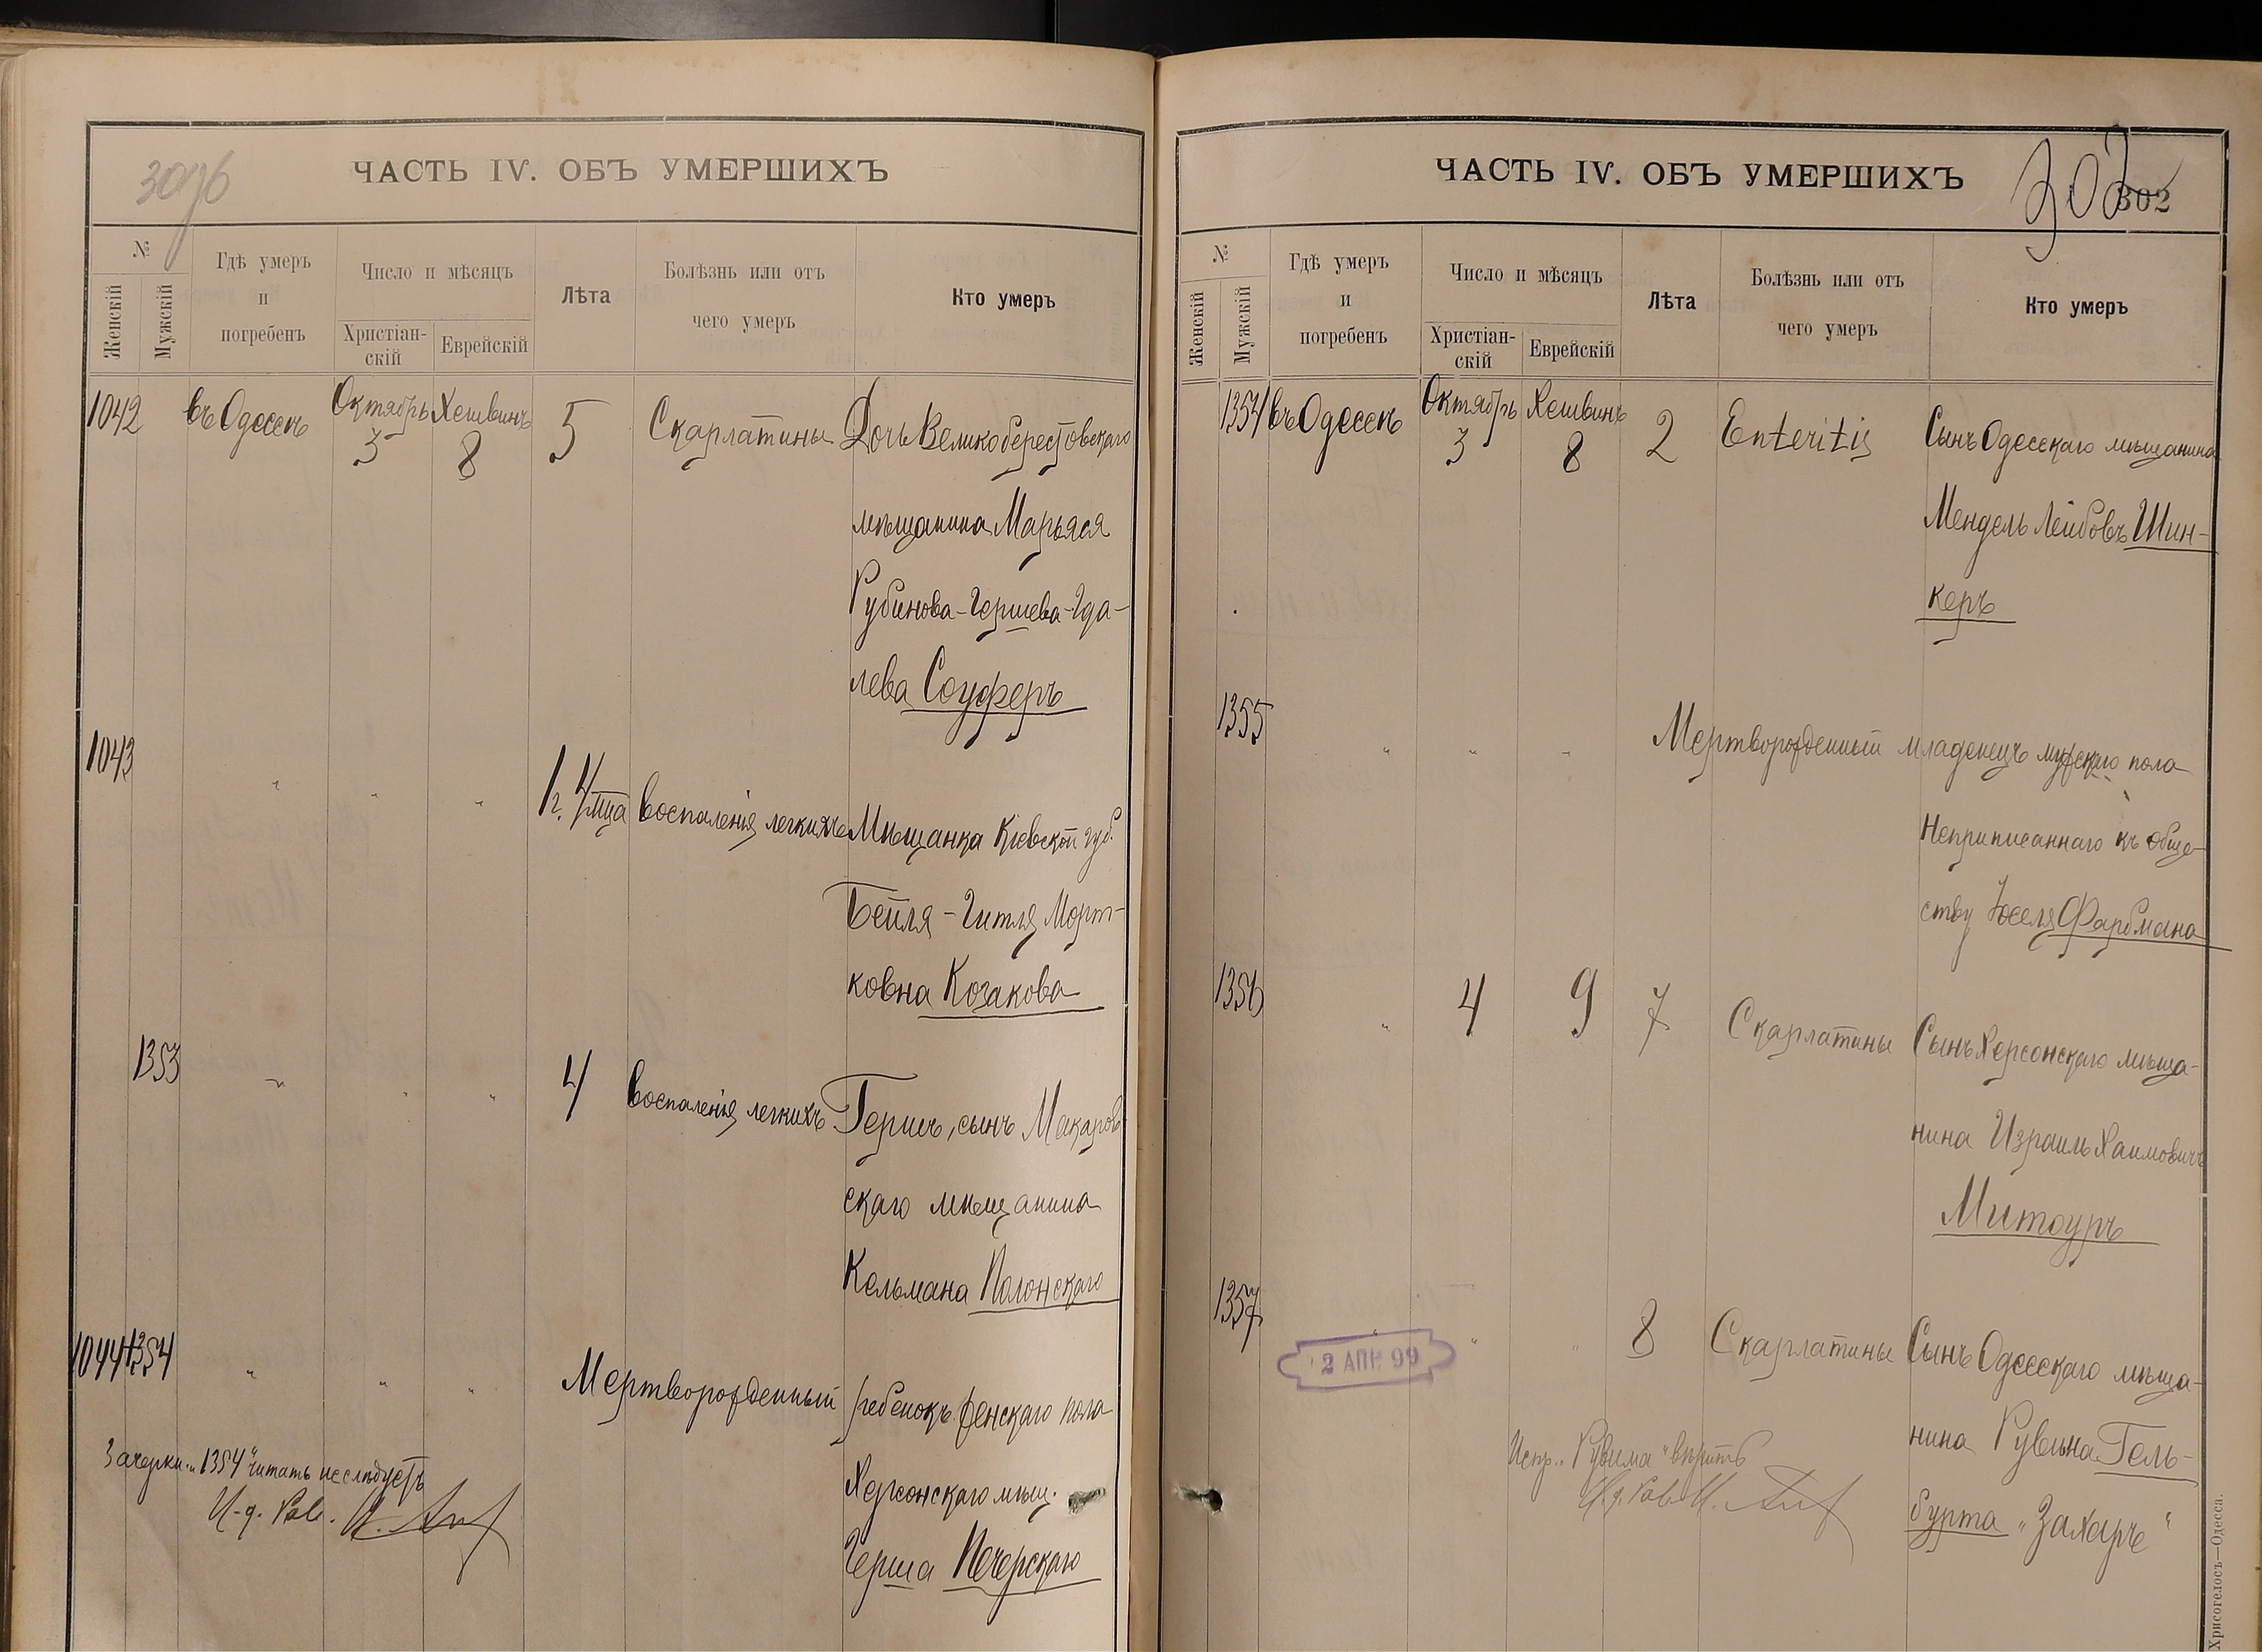 3096
ЧАСТЬ IV. ОБЪ УМЕРШИХЪ
№
Женскій
Мужскій
Гдѣ умеръ
и
погребенъ
Число и мѣсяцъ
Христіан-
скій
Еврейскій
Лѣта
Болѣзнь или отъ
чего умеръ
Кто умеръ
1042 въ Одессѣ Октябрь 3 Хешвинъ 8 5 Скарлатины Дочь Великоберестовскаго
мѣщанина Марьяся
Рубинова-Гершева-Гда-
лева Соуферъ
1043 " " " 1 г. 4 мца воспаленія легкихъ Мѣщанка Кіевской губ.
Бейля-ГитляМорт-
ковна Козакова
1353 " " " 4 воспаленія легкихъ Гершъ, сынъ Макаров
скаго мѣщанина
Кельмана Полонскаго
1044 1354 " " " Мертворожденный ребенокъ женскаго пола
Херсонскаго мѣщ.
Герша Печерскаго
Зачеркн. „1354" читать не слѣдуетъ
И-д. Рав.
ЧАСТЬ IV. ОБЪ УМЕРШИХЪ
302
302
№
Женскій
Мужскій
Гдѣ умеръ
и
погребенъ
Число и мѣсяцъ
Христіан-
скій
Еврейскій
Лѣта
Болѣзнь или отъ
чего умеръ
Кто умеръ
1354 въ Одессѣ Октябрь 3 Хешвинъ 8 2 Enteritis Сынъ Одесскаго мѣщанина
Мендель Лейбовъ Шин-
керъ
1355 " " " Мертворожденный младенецъ мужскаго пола
Неприписаннаго къ обще-
ству Іоселя Фарбмана
1356 " 4 9 7 Скарлатины Сынъ Херсонскаго мѣща-
нина Израиль Хаимовичъ
Митоуръ
1357 " " " 8 Скарлатины Сынъ Одесскаго мѣща-
нина Рувина Гель-
бурта „Захаръ"
2 АПР. 99
Испр. „Рувима" вѣрить
И.д. Рав.
Хрисогелосъ—Одесса.